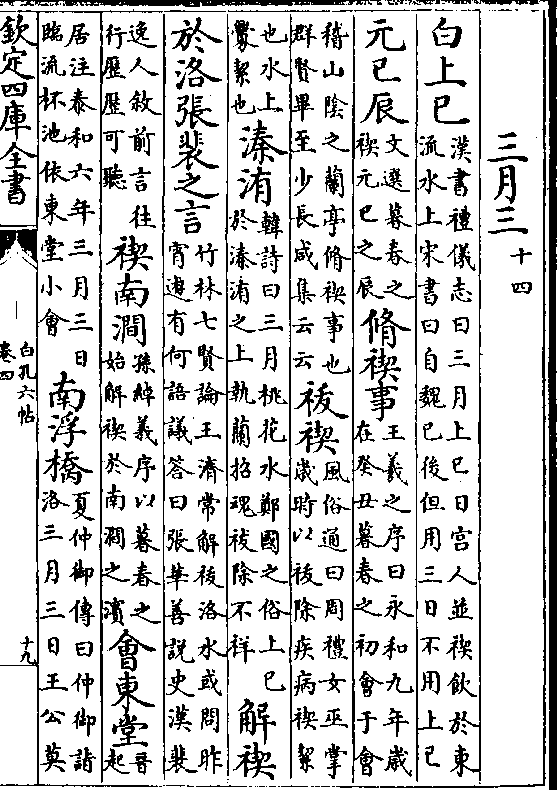 三月三 十四
白上巳 漢書禮儀志曰三月上巳日宫人並禊飲於東
流水上宋書曰自魏已後但用三日不用上巳
元巳辰 文選暮春之
禊元巳之辰
脩禊事 王羲之序曰永和九年歲
在癸丑暮春之初會于會
稽山陰之蘭亭脩禊事也
群賢畢至少長咸集云云
祓禊 風俗通曰周禮女巫掌
歲時以祓除疾病禊絜
也水上
釁絜也
溱洧 韓詩曰三月桃花水鄭國之俗上巳
於溱洧之上執蘭招魂祓除不祥
解禊
於洛張裴之言 竹林七賢論王濟常解禊洛水或問昨
宵遊有何語議答曰張華善説史漢裴
逸人敘前言往
行歷歷可聽
禊南澗 孫綽義序以暮春之
始解禊於南澗之濱
會東堂 晉
起
居注泰和六年三月三日
臨流杯池依東堂小會
南浮橋 夏仲御傳曰仲御詣
洛三月三日王公莫
欽定四庫全書
白孔六帖
卷四
十九